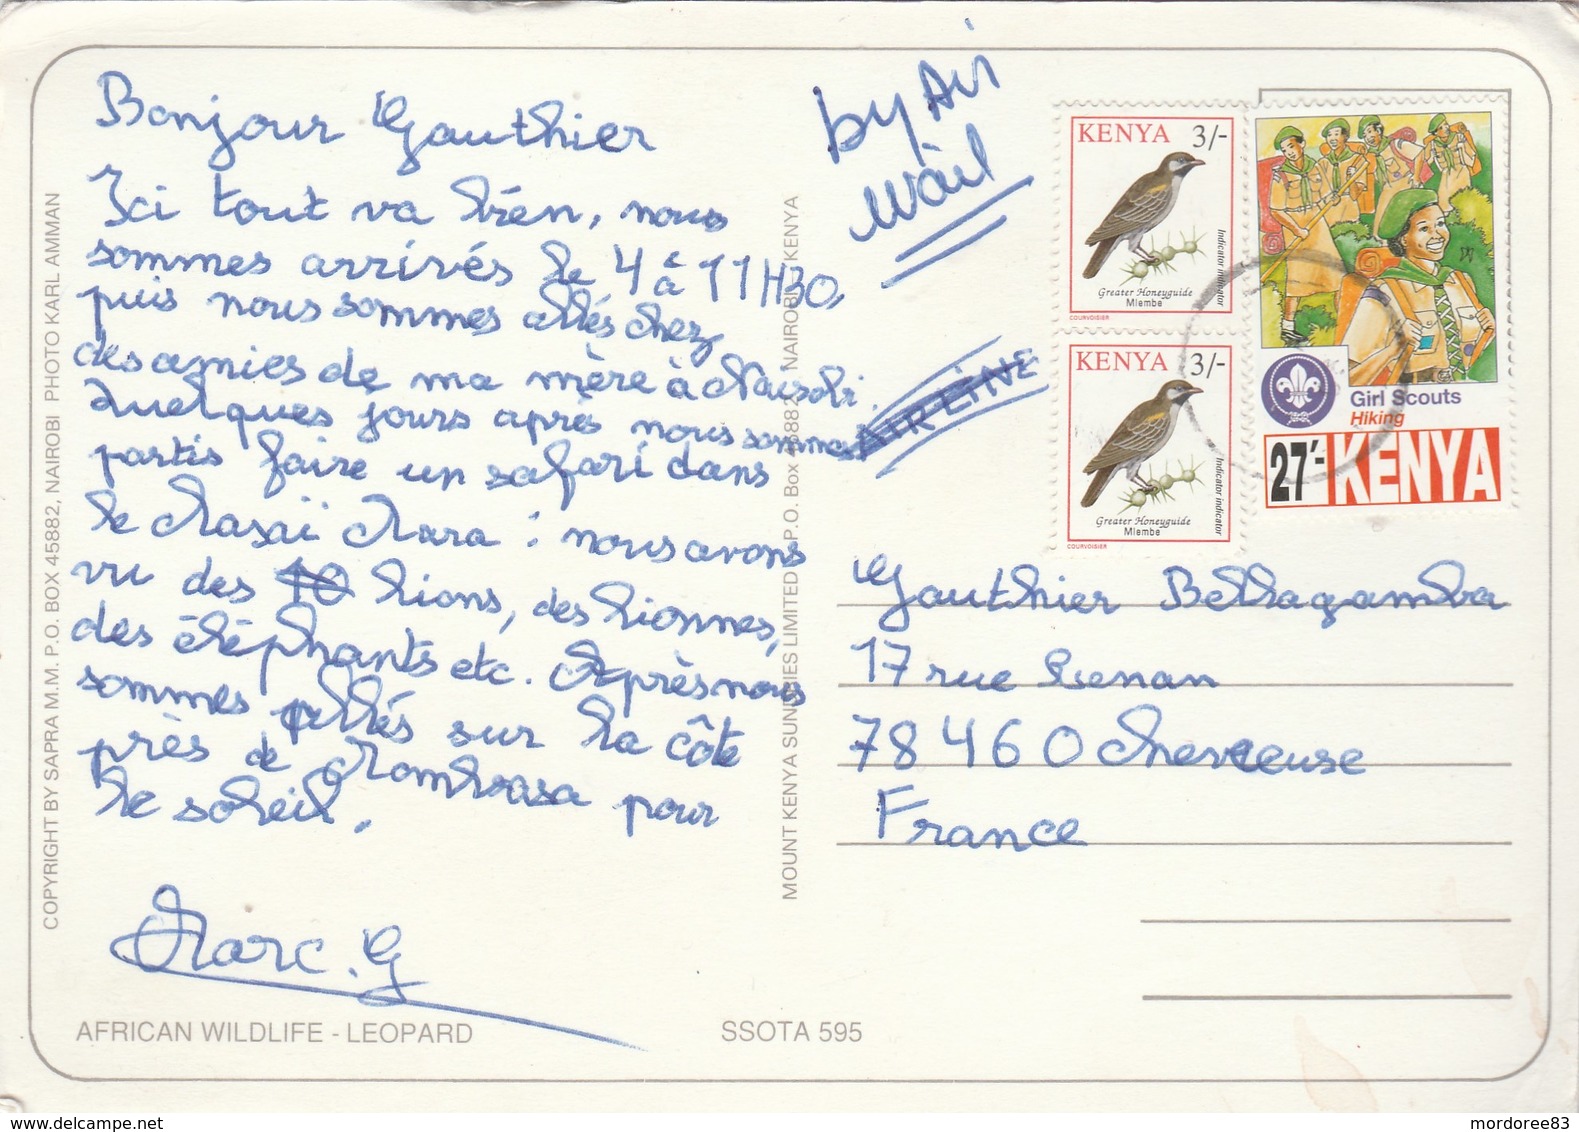 Bonjour Gauthier
Ici tout va bien, nous
sommes arrivés le 4 à 11H30
puis nous sommes allés chez
des amies de ma mère à Nairobi.
Quelques jours après nous sommes
partis faire un safari dans
le Masaï Mara : nous avons
vu des 10 lions, des lionnes,
des éléphants etc. Après nous
sommes allés sur la côte
près de Mombasa pour
le soleil.
Marc.G
AFRICAN WILDLIFE - LEOPARD
SSOTA 595
COPYRIGHT BY SAPRA M.M. P.O. BOX 45882, NAIROBI PHOTO KARL AMMAN
MOUNT KENYA SUNDRIES LIMITED P.O. Box 45882, NAIROBI, KENYA
by Air
Mail
AIR LINE
KENYA 3/-
Indicator indicator
Greater Honeyguide
Mlembe
COURVOISIER
KENYA 3/-
Indicator indicator
Greater Honeyguide
Mlembe
COURVOISIER
Girl Scouts
Hiking
27/- KENYA
Gauthier
17 rue Renan
78460 Chevreuse
France
mordoree83